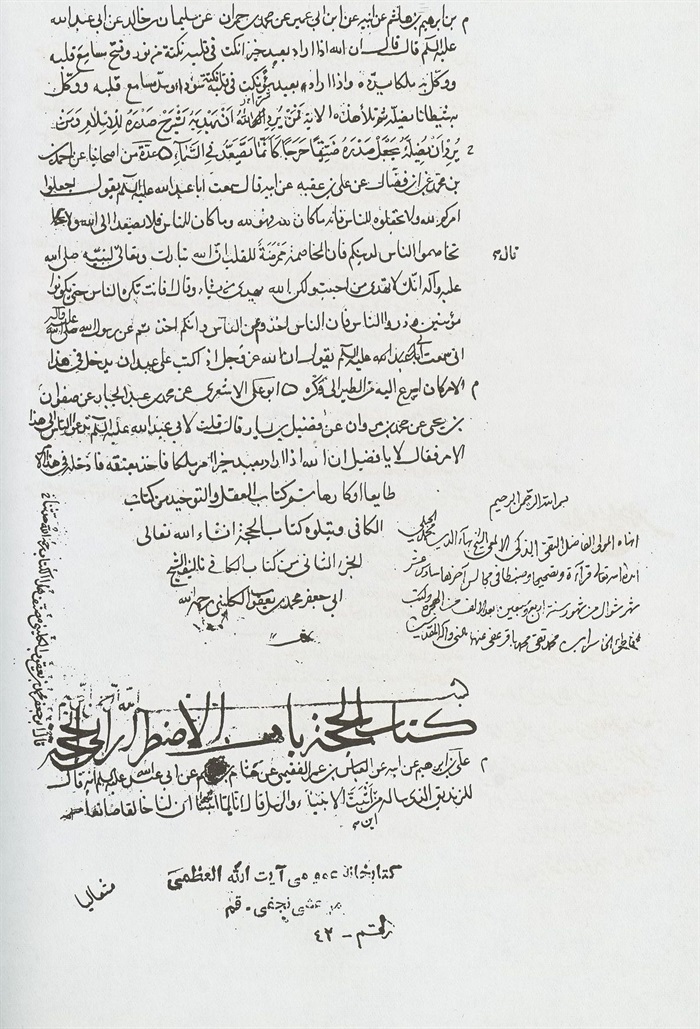 بن ابرهيم بن هاشم عن ابيه عن ابن ابى عمير عن محمد بن حمران عن سليمان بن خالد عن ابى عبد الله
عليه السلم قال قال ان الله اذا اراد بعبد خيرا نكت فى قلبه نكتة من نور وفتح مسامع قلبه
ووكل به ملكا يسدده واذا اراد بعبد سوءا نكت فى قلبه نكتة سوداء وسد مسامع قلبه ووكل
به شيطانا يضله ثم تلا هذه الاية فمن يرد الله ان يهديه يشرح صدره للاسلام ومن
يرد ان يضله يجعل صدره ضيقا حرجا كانما يصعد فى السماء عدة من اصحابنا عن احمد
بن محمد عن ابن فضال عن على بن عقبه عن ابيه قال سمعت ابا عبد الله عليه السلم يقول اجعلوا
امركم لله ولا تجعلوه للناس فانه ما كان لله فهو لله وما كان للناس فلا يصعد الى الله ولا
تخاصموا الناس لدينكم فان المخاصمة ممرضة للقلب ان الله تبارك وتعالى لنبيه صلى الله
قال
عليه وآله انك لا تهدى من احببت ولكن الله يهدى من يشاء وقال افانت تكره الناس حتى يكونوا
مؤمنين وذروا الناس فان الناس اخذوا عن الناس وانكم اخذتم عن رسول الله صلى الله عليه وآله
انى سمعت ابا عبد الله عليه السلم يقول ان الله عز وجل اذا كتب على عبد ان يدخل فى هذا
الامر كان اسرع اليه من الطير الى وكره ابو على الاشعرى عن محمد بن عبد الجبار عن صفوان
بن يحيى عن محمد بن مروان عن فضيل بن يسار قال قلت لابى عبد الله عليه السلم ندعو الناس الى هذا
الامر فقال لا يا فضيل ان الله اذا اراد بعبد خيرا امر ملكا فاخذ بعنقه فادخله فى هذا الامر
طايعا او كارها تم كتاب العقل والتوحيد من كتاب
الكافى ويتلوه كتاب الحجة انشاء الله تعالى
الجزء الثانى من كتاب الكافى تاليف الشيخ
ابى جعفر محمد بن يعقوب الكلينى رحمه الله
بسم الله الرحمن الرحيم
انهاه المولى الفاضل التقى الذكى
ايده الله تعالى قراءة وتصحيحا وضبطا فى مجالس آخرها سادس عشر
شهر شوال من شهور سنة اربع وسبعين بعد الالف من الهجرة وكتب
محمد تقى محمد باقر عفى عنهما بالنبى وآله
كتاب الحجة باب الاضطرار الى الحجة
على بن ابرهيم عن ابيه عن العباس بن عمر الفقيمى عن هشام بن الحكم عن ابى عبد الله عليه السلم انه قال
للزنديق الذى ساله من اين اثبت الانبياء والرسل قال انا لما اثبتنا ان لنا خالقا صانعا
متعاليا
كتابخانه عمومى آيت الله العظمى
مرعشى نجفى - قم